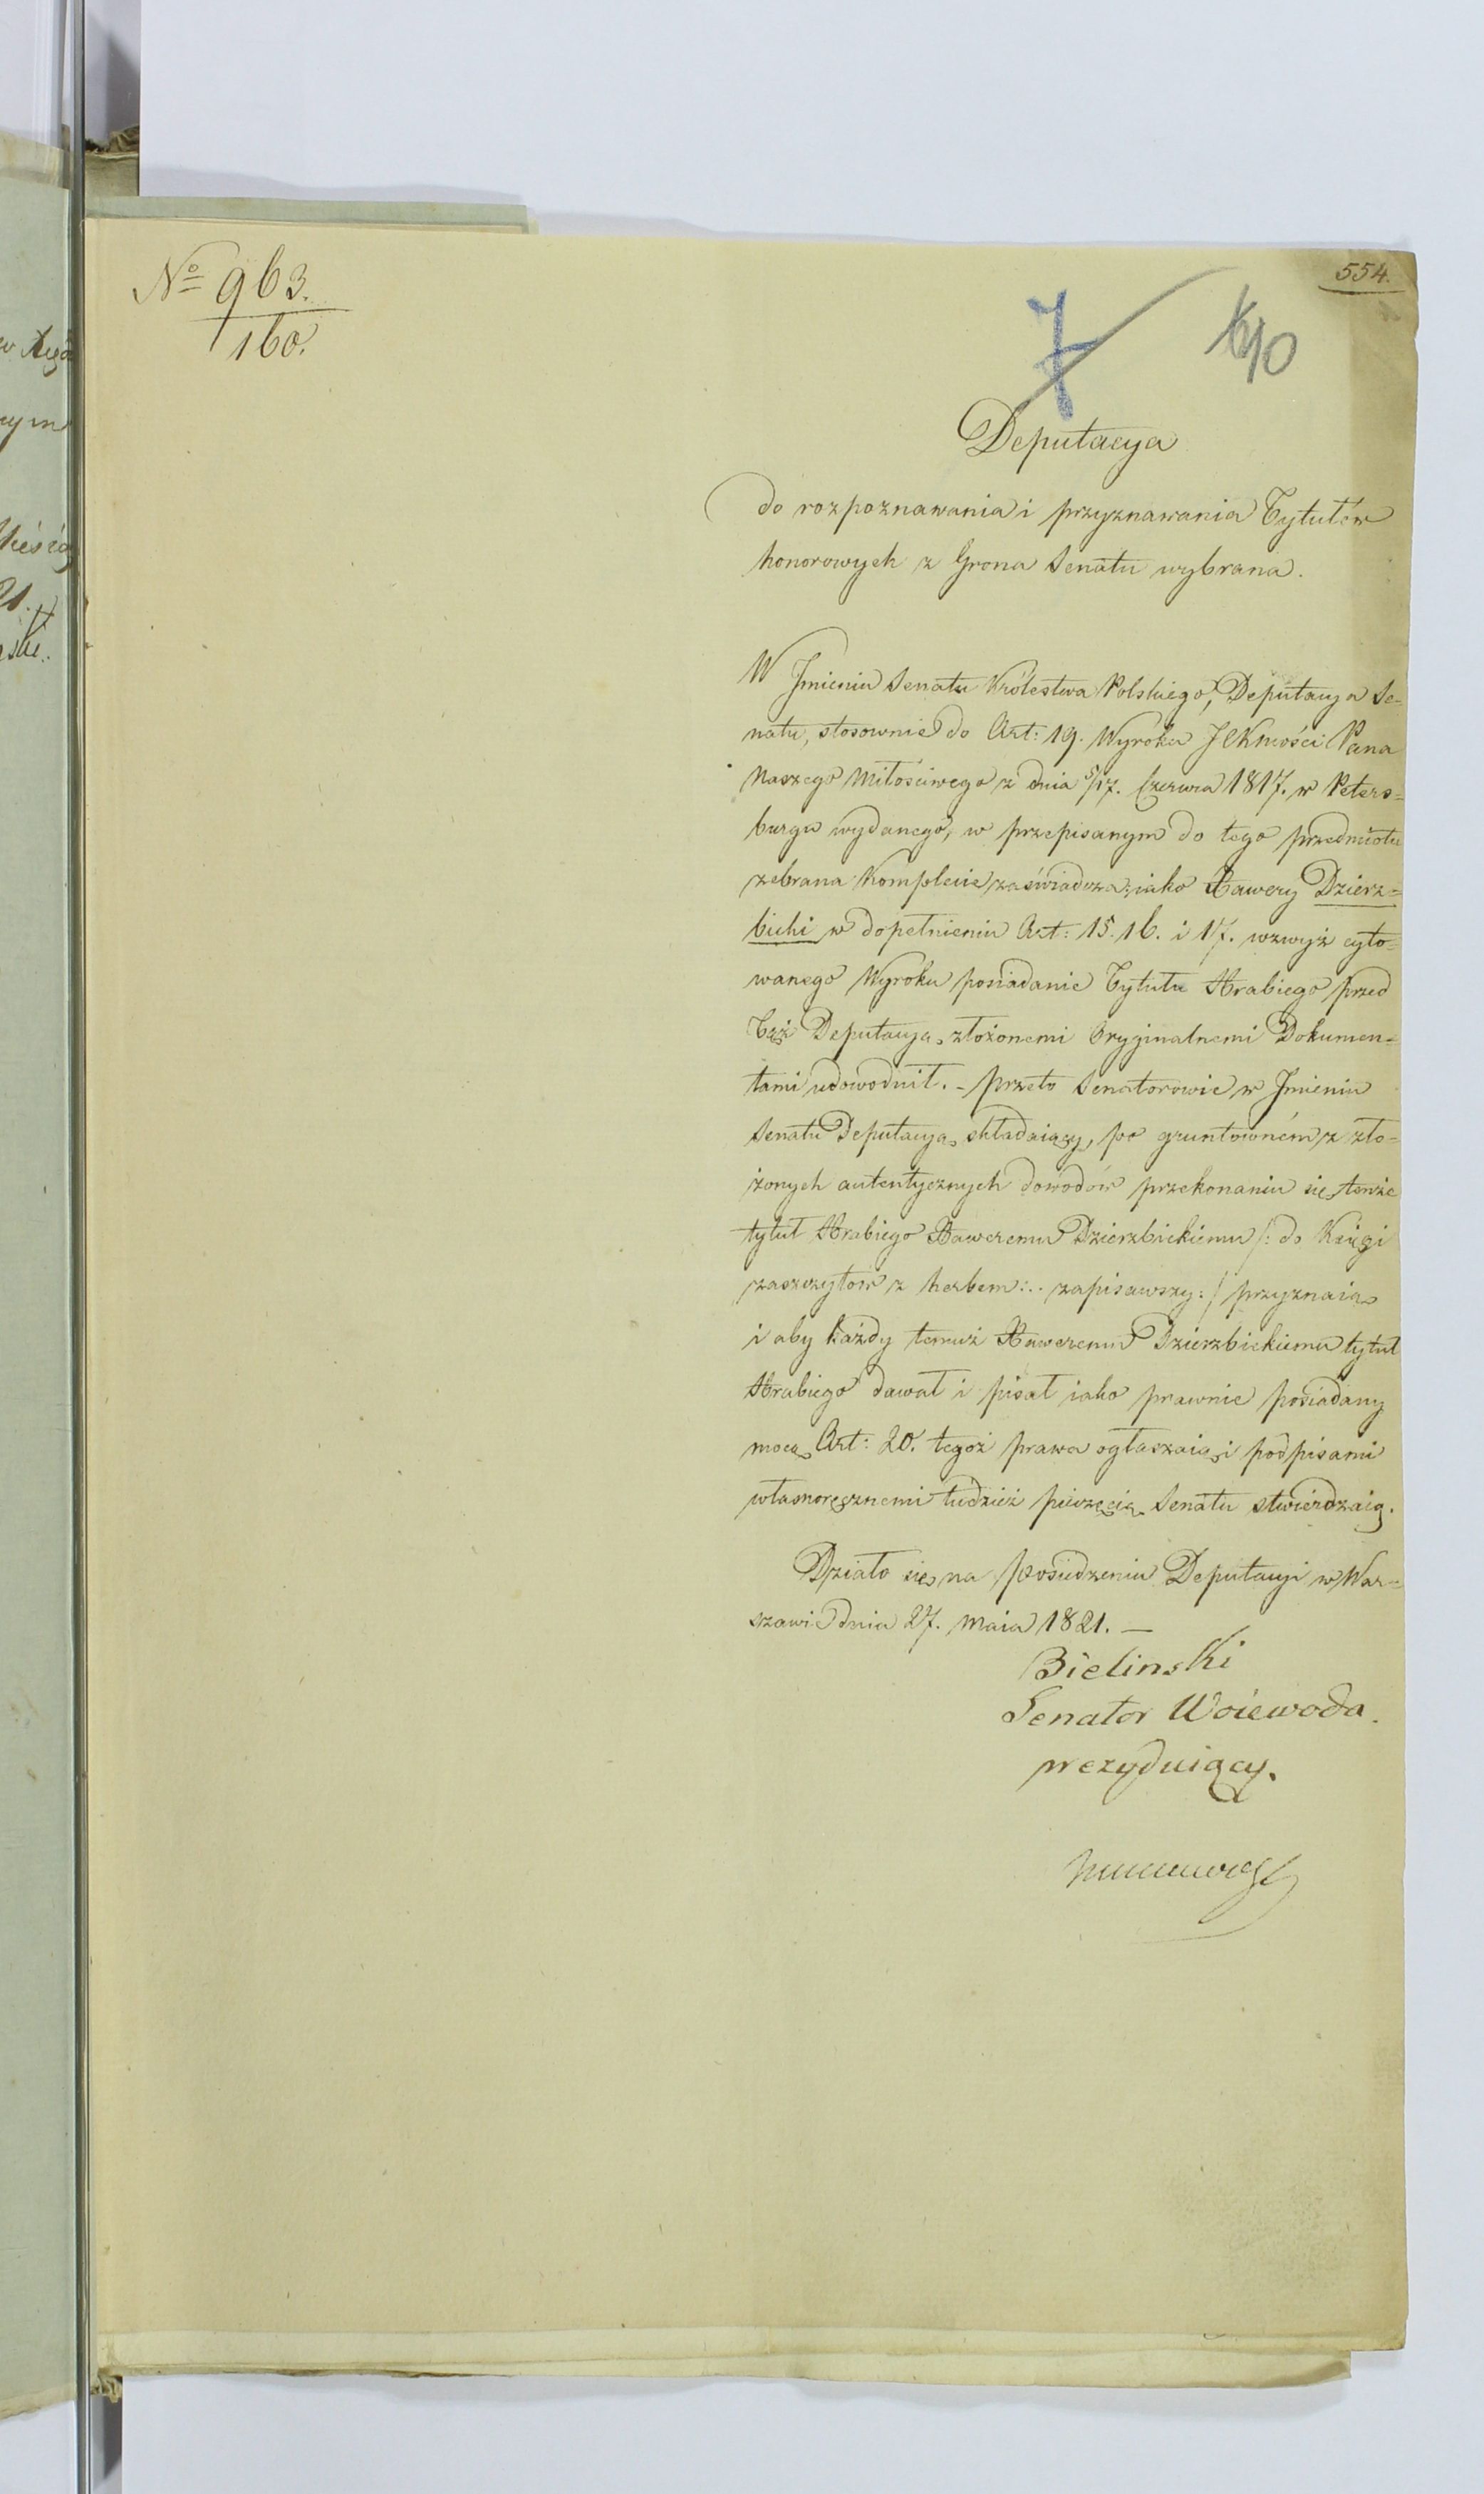 554.
№ 963.
160.
7
10
Deputacya
do rozpoznawania i przyznawania Tytułów
honorowych z Grona Senatu wybrana.
W Jmieniu Senatu Królestwa Polskiego, Deputacya Se=
natu, stosownie do Art: 19. Wyroku JCKMości Pana
Naszego Miłościwego z dnia 5/17. Czerwca 1817. w Peters=
burgu wydanego, w przepisanym do tego przedmiotu
zebrana Komplecie zaświadcza, iako Xawery Dzierz=
bicki w dopełnieniu Art: 15. 16. i 17. wzwyż cyto=
wanego Wyroku posiadanie Tytułu Hrabiego przed
Taż Deputacyą złożonemi Oryginalnemi Dokumen=
tami udowodnił. - przeto Senatorowie w Jmieniu
Senatu Deputacyą składaiący, po gruntowném z zło=
żonych autentycznych dowodów przekonaniu się, tenże
tytuł Hrabiego Xaweremu Dzierzbickiemu /: do Księgi
zaszczytów z herbem:.. zapisawszy: / przyznaią
i aby każdy temuż Xaweremu Dzierzbickiemu tytuł
Hrabiego dawał i pisał iako prawnie posiadany
mocą Art: 20. tegoż prawa ogłaszaią, i podpisami
własnoręcznemi tudzież pieczęcią Senatu stwierdzaią.
Działo się na posiedzeniu Deputacyi w War=
szawie dnia 27. Maia 1821. —
Bielinski
Senator Woiewoda.
prezyduiący.